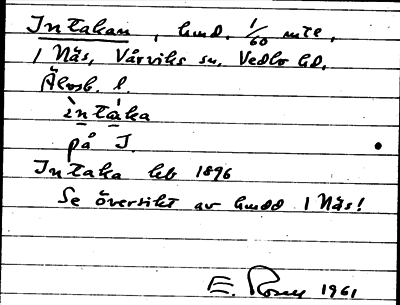 Intakan, hmd. 1/60 mtl,
1 Näs, Vårviks sn, Vedbo hd,
Älvsb. l.
ìntàka
på I.
Intaka hb 1896
Se översikt av hmdd 1 Näs!
E. 1961